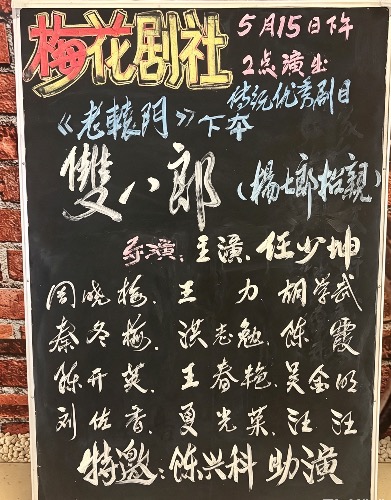 梅花剧社
5月15日下午
2点演出
传统优秀剧目
《老轅門》下本
雙八郎
(楊七郎招親)
导演:王演、任少坤
周晓梅、王力、胡学武
秦冬梅、洪志勉、陈霞
陈开英、王春艳、吴金明
刘佐香、夏光英、汪汪
特邀:陈兴科助演